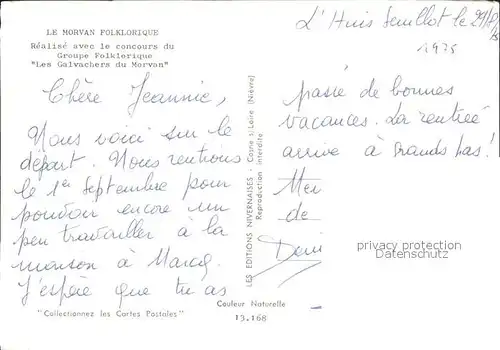 LE MORVAN FOLKLORIQUE
Réalisé avec le concours du
Groupe Folklorique
"Les Galvachers du Morvan"
L'Huis
le 29/8/
1975
Chère Jeannie,
Nous voici sur le
départ. Nous rentrons
le 1er Septembre pour
pouvoir encore un
peu travailler à la
maison à
J'espère que tu as
passé de bonnes
vacances. La rentrée
arrive à grands pas!
de
LES EDITIONS NIVERNAISES - Cosne s/Loire (Nièvre)
Reproduction interdite
privacy protection
Datenschutz
Couleur Naturelle
"Collectionnez les Cartes Postales"
13.168